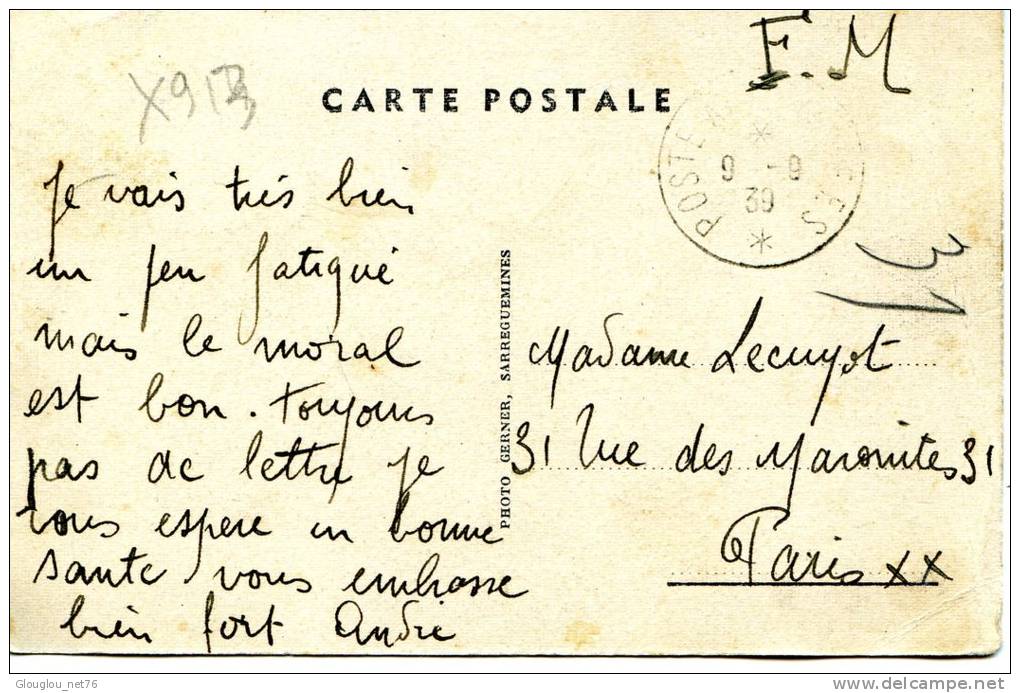 F.M
CARTE POSTALE
POSTE
9 -9
39
31
Je vais très bien
un peu fatigué
mais le moral
est bon. toujours
pas de lettre je
vous espere en bonne
sante vous embrasse
bien fort André
PHOTO GERNER, SARREGUEMINES
Madame Lecuyot
31 Rue des Maronites 31
Paris XX
Glouglou_net76
www.delcampe.net